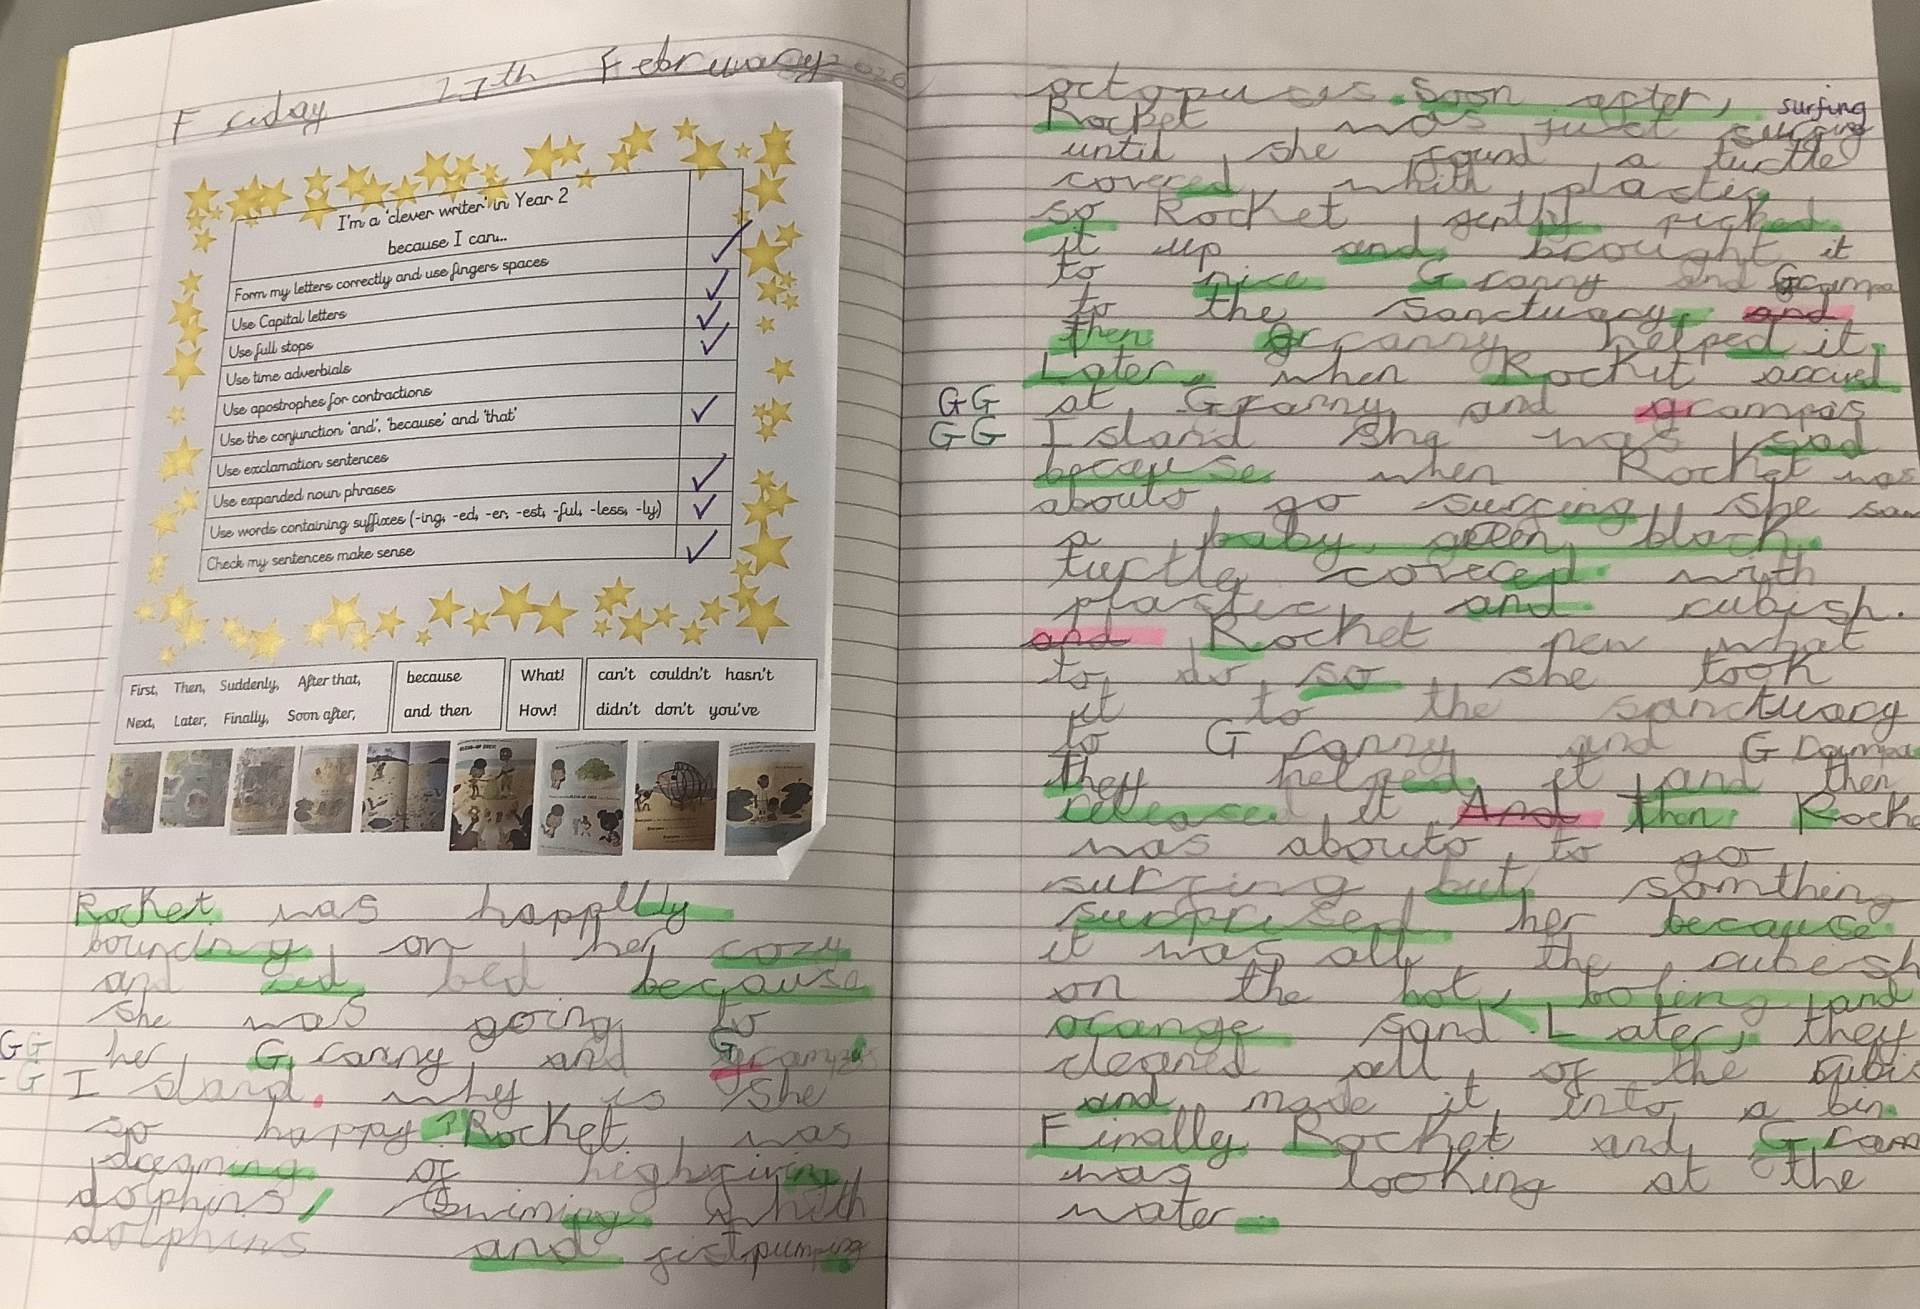 Friday 27th February 2026
I'm a 'clever writer' in Year 2
because I can...
Form my letters correctly and use fingers spaces
Use Capital letters
Use full stops
Use time adverbials
Use apostrophes for contractions
Use the conjunction 'and', 'because' and 'that'
Use exclamation sentences
Use expanded noun phrases
Use words containing suffixes (-ing, -ed, -er, -est, -ful, -less, -ly)
Check my sentences make sense
First, Then, Suddenly, After that,
Next, Later, Finally, Soon after,
because
and then
What!
How!
can't couldn't hasn't
didn't don't you've
Rocket was happily
bouncing on her cozy
and red bed because
she was going to
GG her Granny and Grampas
G Island. why is she
so happy? Rocket was
dreaming of highfiving
dolphins, Swiming whith
dolphins and fistpumping
octopuses. Soon after,
surfing
Rocket was just surfing
until she found a turtle
covered whith plastic,
so Rocket gently picked
it up and brought it
to nice Granny and Grampa
to the sanctuary. and
then Granny helped it.
Later, when Rocket arrived
GG at Granny and grampas
GG Island she was sad
because when Rocket was
abouto go surfing she saw
a baby, green, black
turtle covered with
plastic and rubish.
and Rocket new what
to do so she took
it to the sanctuary
to Granny and Grampa
they helped it and then
released it And then Rocke
was abouto to go
surfing but somthing
surprised her because
it was all the rubesh
on the hot, boleing and
orange sand. Later, they
cleaned all of the rubis
and made it into a bin.
Finally Rocket and Gram
was looking at the
water.